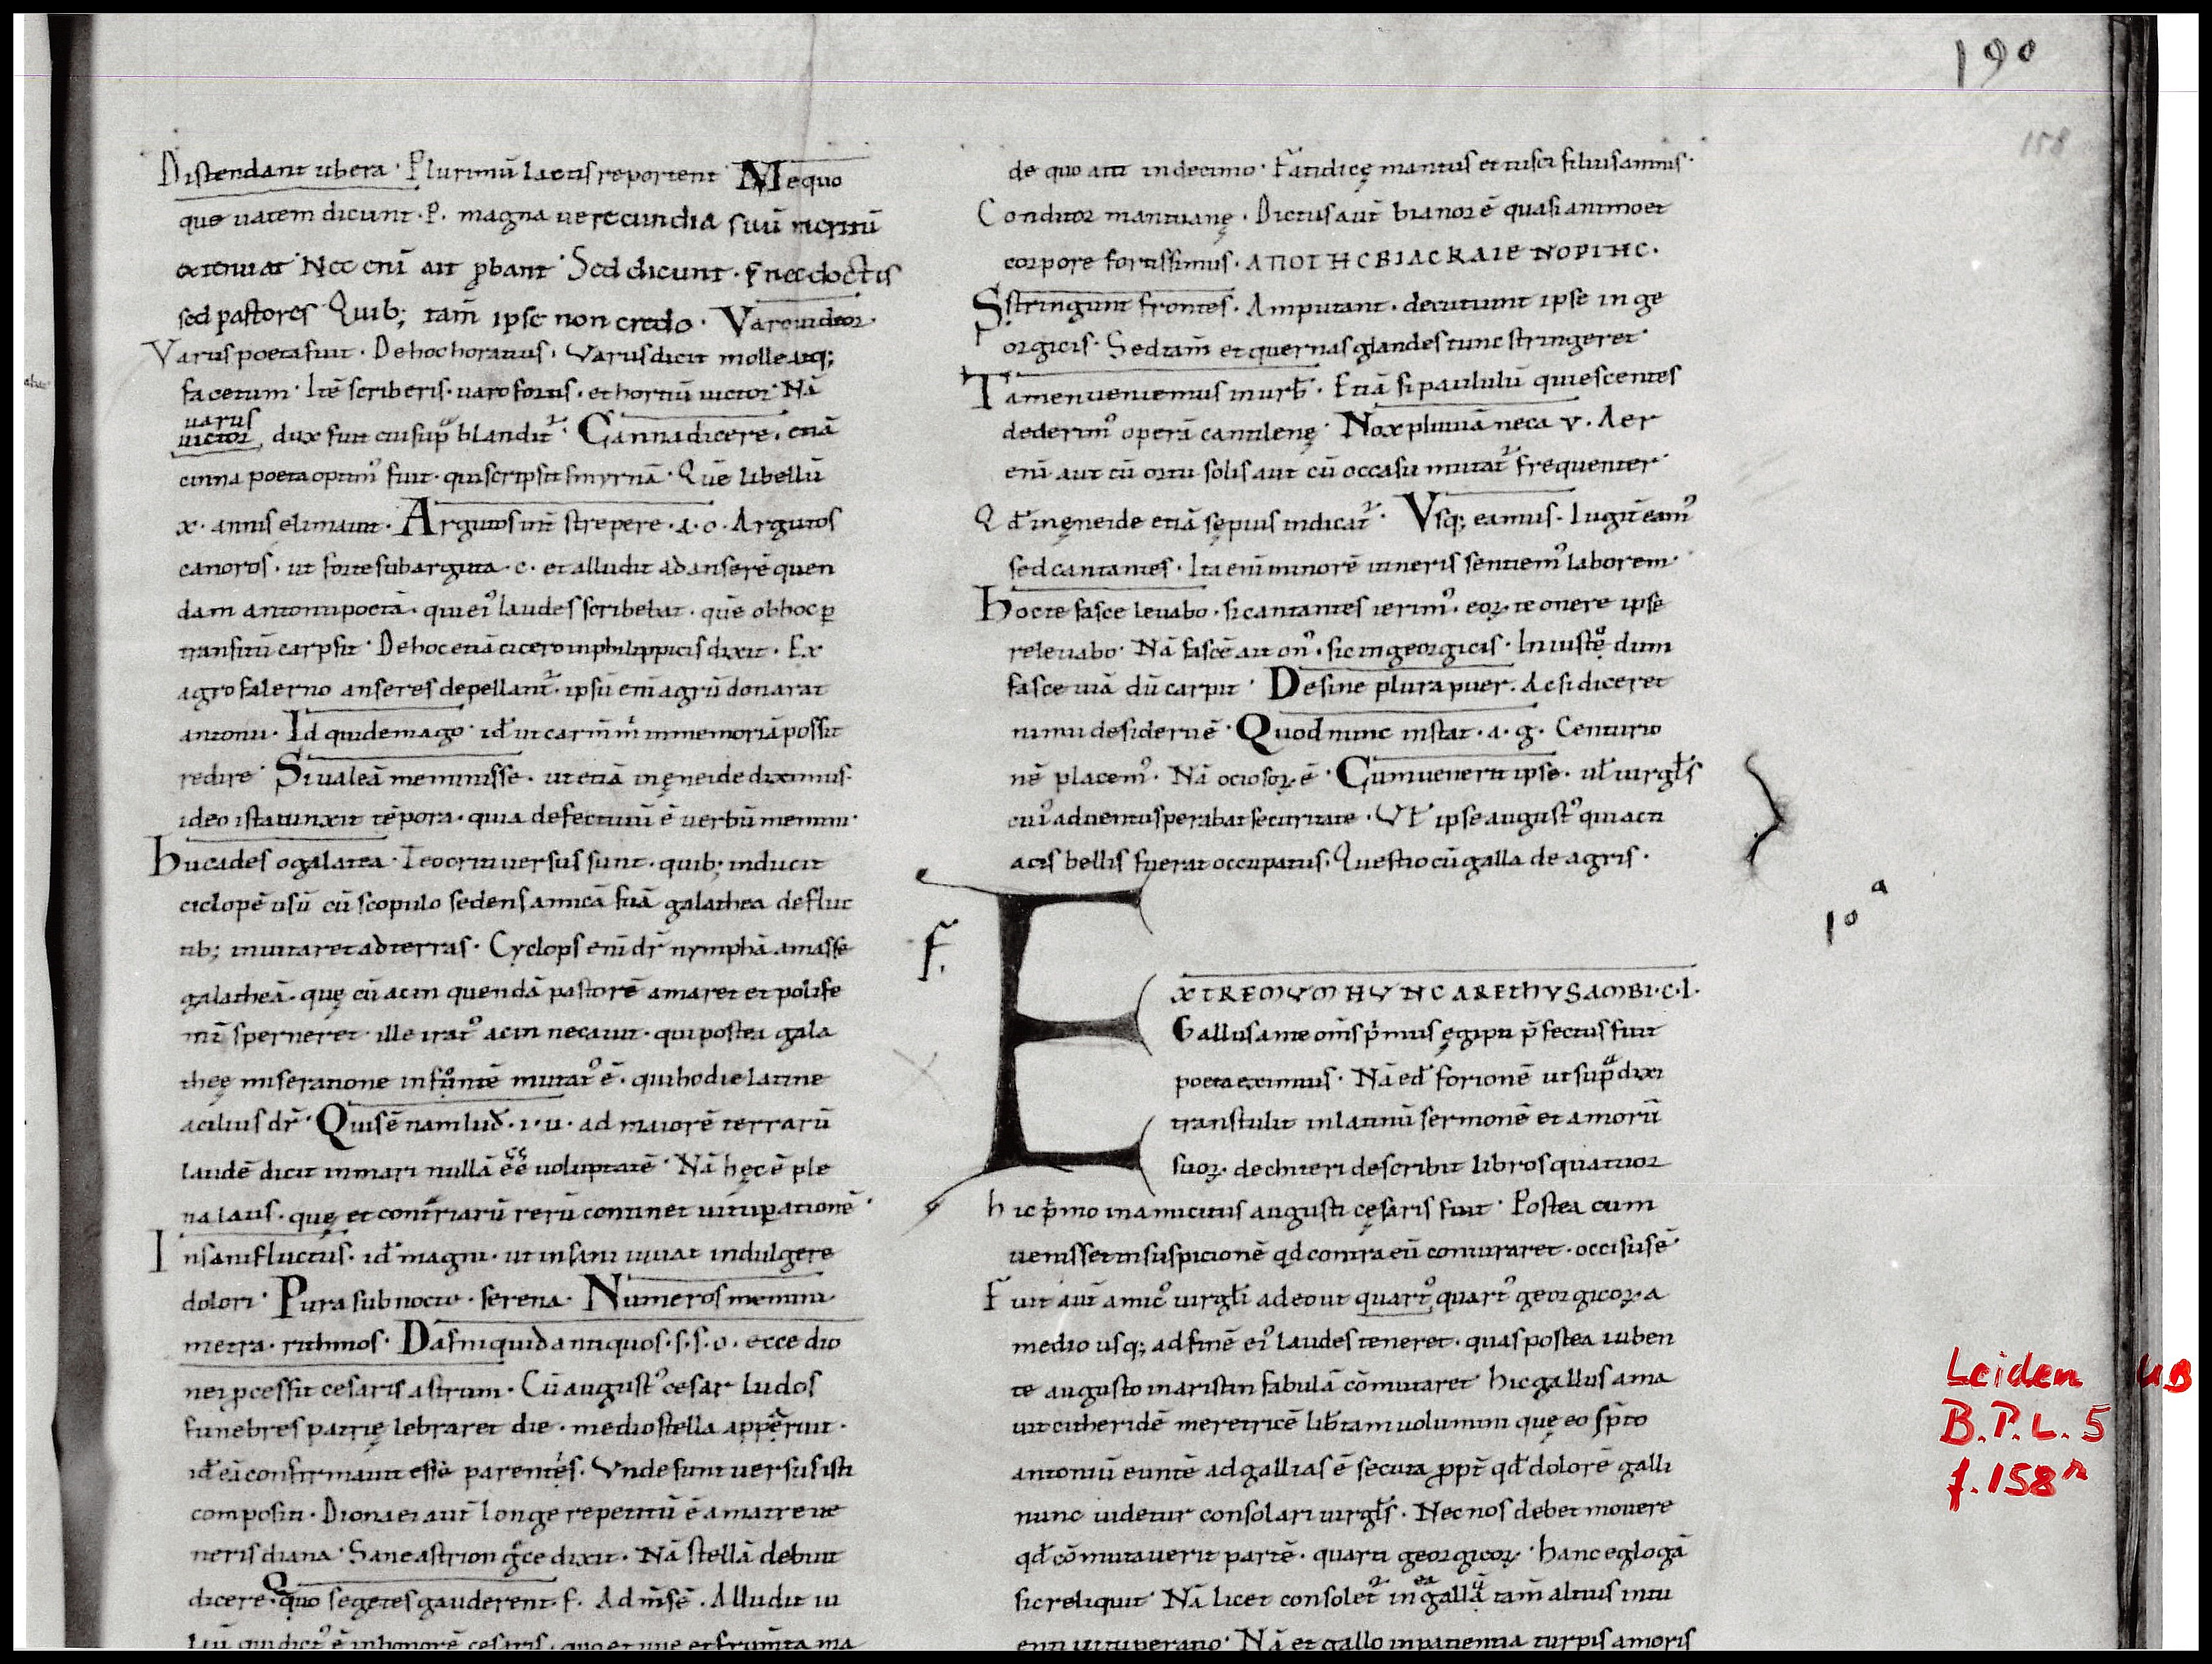 190
158
Distendant ubera · Plurimū lactis reportent · Me quo
que uatem dicunt · P. magna uerecundia suū meritū
extenuat · Nec eni ait ꝓbant · Sed dicunt · ꝑ nec doctis
sed pastores · Quib; tam̄ ipse non credo · Varo uideor ·
Varus poeta fuit · De hoc horatius · Varus dicit molle atq;
facetum · Itē scriberis · uaro fortis · et hortiū uictor · Nā
uarus
uictor, dux fuit cui sup̄ blandit᷑ · Cinna dicere · etiā
cinna poeta optim᷒ fuit · qui scripsit smyrnā · Quē libellū
x · annis elimauit · Argutos int̄ strepere · a · o · Argutos
canoros · ut forte sub arguta · c · et alludit ad anserē quen
dam antonii poetā · qui ei᷒ laudes scribebat · quē ob hoc ꝑ
transitū carpsit · De hoc etiā cicero in philippicis dixit · Ex
agro falerno anseres depellant᷑ · ipsū eni agrū donarat
antoni · Id quidem ago · id ut carm̄ in memoriā possit
redire · Si ualeā meminisse · ut etiā in ęneide diximus ·
ideo ista iunxit tēpora · quia defectiuū ē uerbū memini ·
huc ades o galatea · Teocriti uersus sunt · quib; inducit
ciclopē usū cū scopulo sedens amicā suā galathea de fluc
tib; inuitaret ad terras · Cyclops eni dr̄ nymphā amasse
galatheā · quę cū acin quendā pastorē amaret et polife
mū sperneret · ille irat᷒ acin necauit · qui postea gala
theę miseratione in fontē mutat᷒ ē · qui hodie latine
acilius dr̄ · Quis ē nam lud · i · u · ad maiorē terrarū
laudē dicit in mari nullā ēē uoluptatē · Nā hęc ē ple
na laus · quę et contrariarū rerū continet uituꝑationē ·
Insani fluctus · id magni · ut insani uiuat indulgere
dolori · Pura sub nocte · serena · Numeros memini ·
metra · rithmos · Dafni quid antiquos · s · s · o · ecce dio
nei ꝓcessit cesaris astrum · Cū august᷒ cesar ludos
funebres patrię lebraret die · medio stella apperuit ·
id eā confirmauit esse parentis · Vnde sunt uersus isti
compositi · Dionaei aut̄ longe repetitū ē a matre ue
neris diana · Sane astrion gr̄ce dixit · Nā stellā debuit
dicere · Quo segetes gauderent · f · Ad m̄sē · Alludit iu
liū qui dict᷒ ē in honorē cesaris · quo et uue et frum̄ta ma
de quo ait in decimo · Fatidicę mantus et tusci filius amnis ·
Conditor mantuanę · Dictus aut̄ bianor ē quasi animo et
corpore fortissimus · ΑΠΟΙΗCΒΙΑCΚΑΙΕΝΟΡΙΗC ·
Sstringunt frontes · Amputant · decutiunt ipse in ge
orgicis · Sed tam̄ et quernas glandes tunc stringeret
Tamen ueniemus in urb̄ · Etiā si paululū quiescentes
dederim᷒ operā cantilenę · Nox pluuiā ne ca v · Aer
eni aut cū ortu solis aut cū occasu mutat᷑ frequenter
Qd in ęneide etiā sępius indicat᷑ · Vsq; eamus · lugit eam᷒
sed cantantes · Ita eni minorē itineris sentiem᷒ laborem ·
hoc te fasce leuabo · si cantantes ierim᷒ · eoꝝ te onere ipse
releuabo · Nā fascē ait on᷒ · sic in georgicis · Iniusto dum
fasce uiā dū carpit · Desine plura puer · Ac si diceret
nimii desiderii ē · Quod nunc instat · a · g · Centurio
nē placem᷒ · Nā ociosoꝝ ē · Cum uenerit ipse · ul uirgls
cui᷒ aduentu sperabat securitate · Vl ipse august᷒ qui acti
acis bellis fuerat occupatus · Questio cū gallo de agris ·
10a
f.
EXTREMVM HVNC ARETHVSA MIBI · C · L ·
Gallus ante om̄s ṗmus ęgipti p̄fectus fuit
poeta eximius · Nā ed forionē ut supᵃ dixi
transtulit in latinū sermonē et amorū
suoꝝ de chiteri describit libros quatuor
hic ṗmo in amicitiis augusti cęsaris fuit · Postea cum
uenisset in suspicionē qd contra eū coniuraret · occisus ē ·
Fuit aut̄ amic᷒ uirgli adeo ut quart᷒ quart᷒ georgicoꝝ a
medio usq; ad finē ei᷒ laudes teneret · quas postea iuben
te augusto in aristin fabulā cōmutaret · hic gallus ama
uit citheridē meretricē lib̄tam uolumini quę eo spr̄to
antoniū euntē ad gallias ē secuta ꝓpt̄ qd dolorē galli
nunc uidetur consolari uirgls · Nec nos debet mouere
qd cōmutauerit partē · quarti georgicoꝝ · hanc eglogā
sic reliquit · Nā licet consolet᷑ in ea gallū tam̄ altius intu
enti uituperatio · Nā et gallo inpatientia turpis amoris
Leiden UB
B.P.L. 5
f. 158r